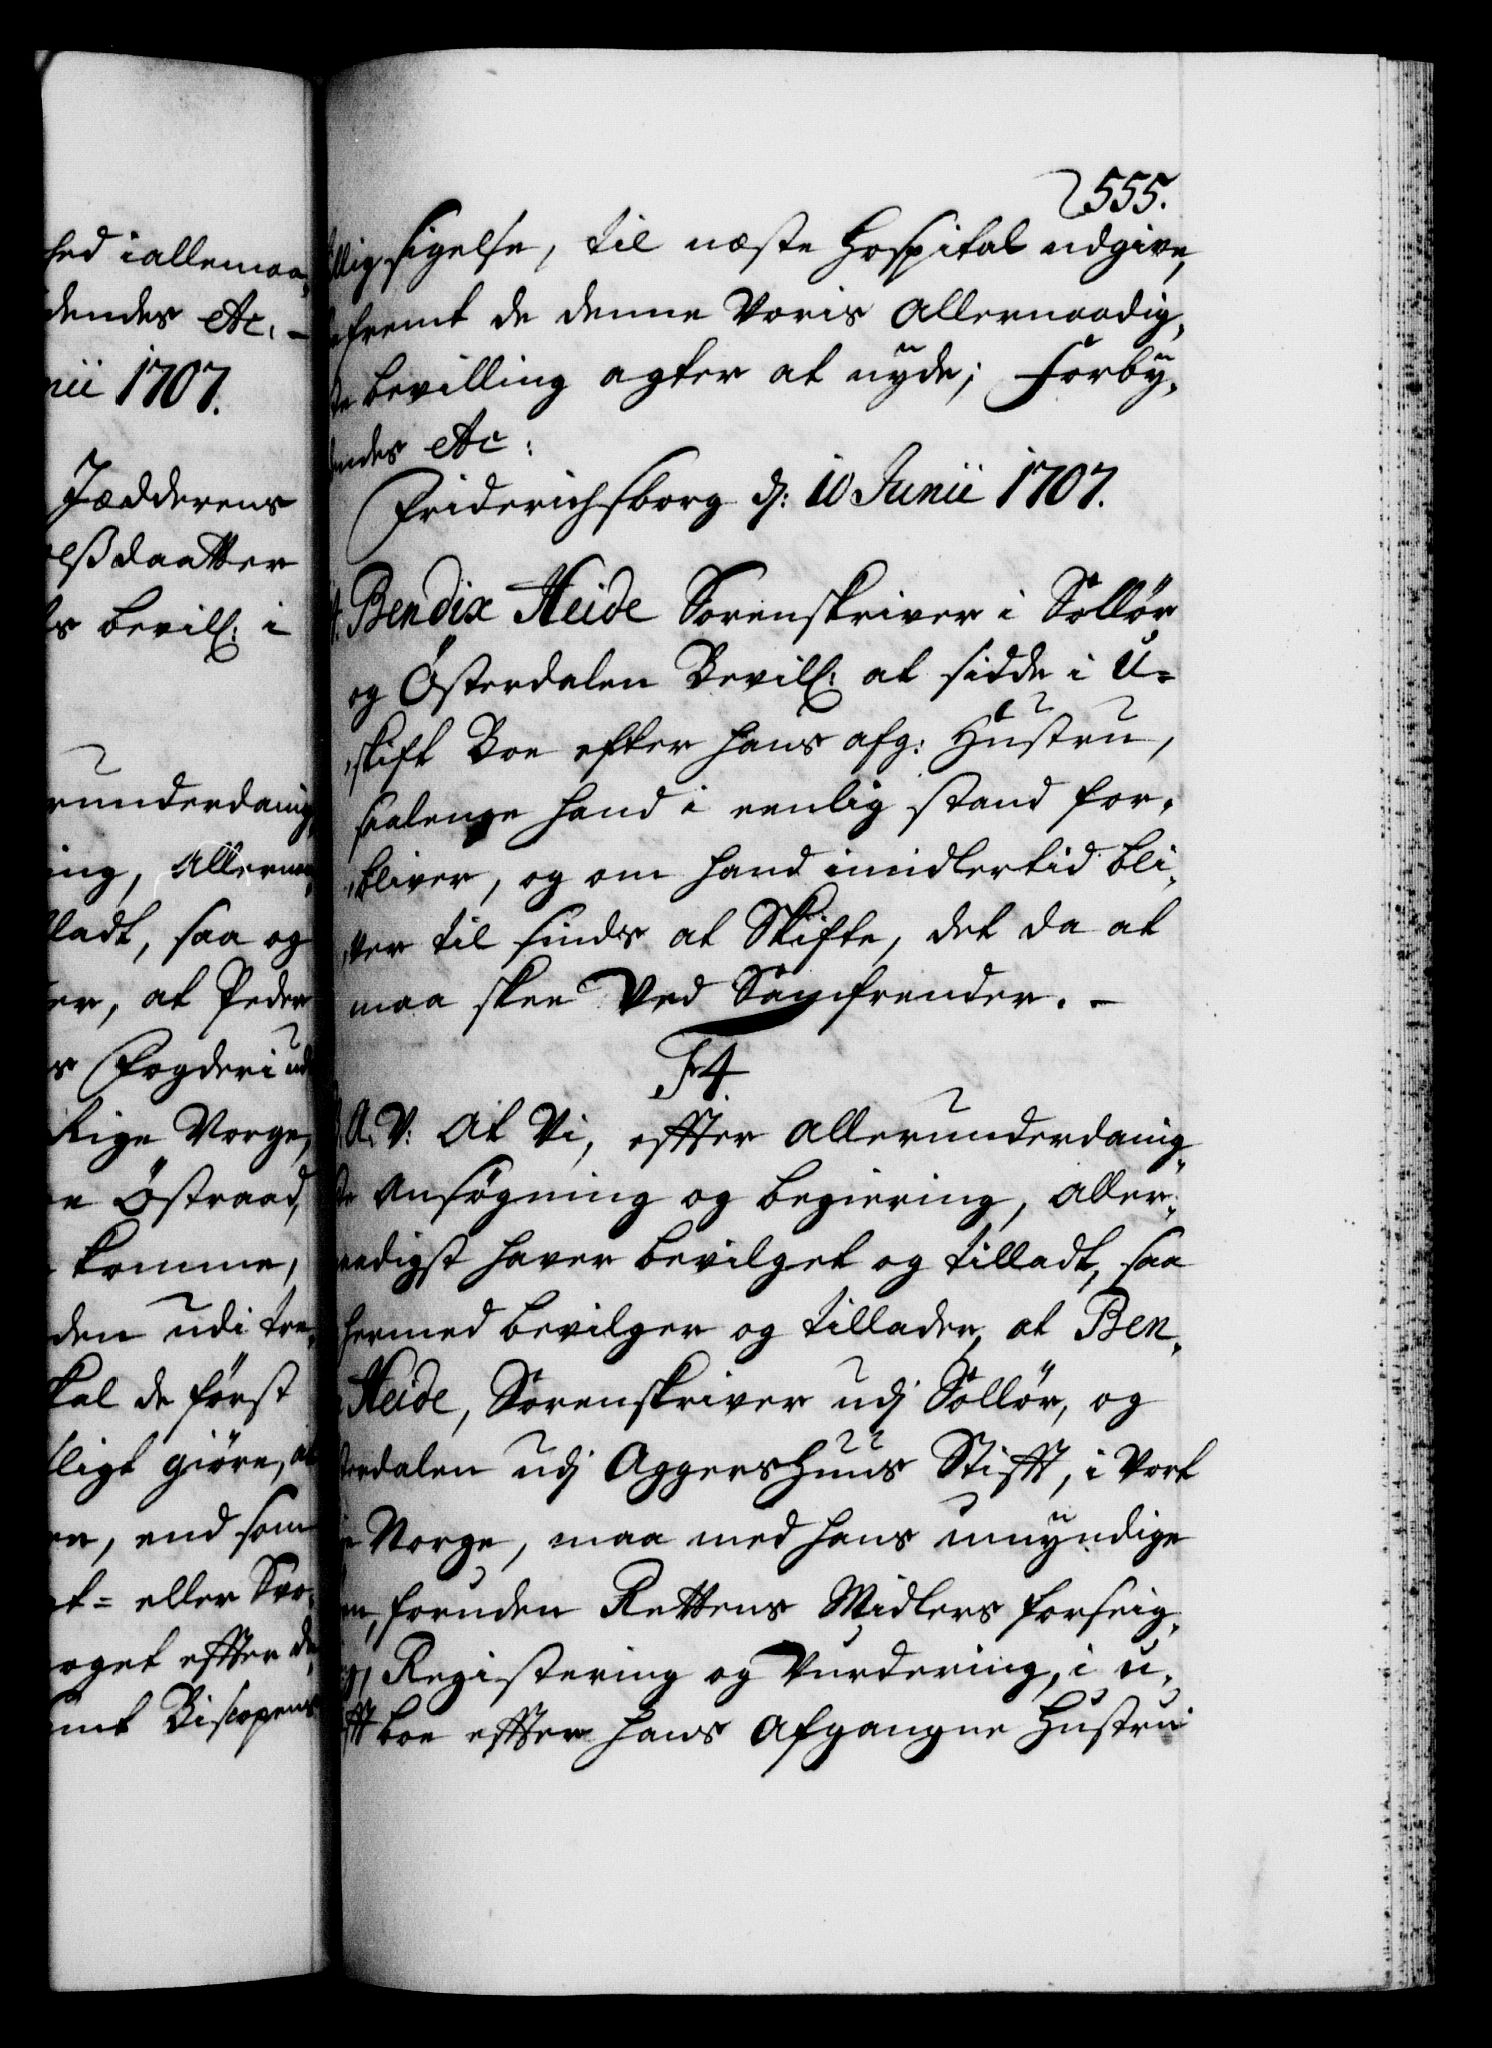 hed i allemaa,
dendes etc. –
nii 1707.
Jædderens
elßdaatter
s bevill: i
runderdanig,
ing, Allernaa,
ladt, saa og
er, at Peder
s Fogderi udi
Rige Norge,
e Östraad,
komme,
den udi tre,
kal de först
ligt giöre, at
en, end som
t= eller Svo,
oget effter d
mt Biscopens
555.
llig sigelse, til næste Hospital udgive,
fremt de denne Voris Allernaadig,
te bevilling agter at nyde; Forby,
endes etc:
Friderichsborg d: 10 Junii 1707.
Bendix Heide Sorenskriver i Sollör
og Österdalen Bevill: at sidde i U=
skift Boe efter hans afg: Hustru,
saalenge hand i eenlig stand for,
bliver, og om hand imidlertid bli,
ver til sinds at Skifte, det da at
maa skee Ved Samfrender. –
F4.
A. V: At Vi, effter allerunderdanig,
te Ansögning og begiering, Aller,
naadigst haver bevilget og tilladt, saa
hermed bevilger og tillader, at Ben,
Heide, Sorenskriver udj Sollör, og
terdalen udj Aggershuus Stifft, i Vort
e Norge, maa med hans umyndige
n, foruden Rettens Midlers forseig,
g, Registering og Vurdering, i u,
fft boe effter hans Afgangne Hustru